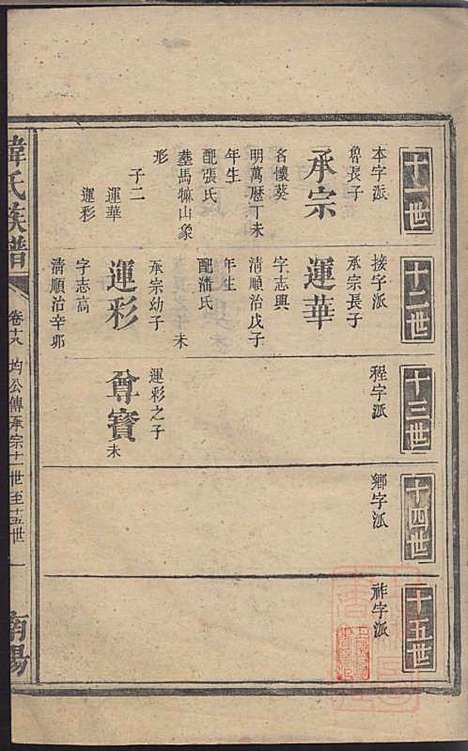 十一世
本字派
魯長子
承宗
名懷葵
明萬曆丁未
年生
配張氏
塟馬嘛山象
形
子二
運華
運彩
十二世
接字派
承宗長子
運華
字志興
清順治戊子
年生
配潘氏
未
承宗幼子
運彩
字志高
清順治辛卯
十三世
程字派
運彩之子
尊寶
未
十四世
鄉字派
十五世
祚字派
韓氏族譜
均公傳承宗十一世至十五世
一
南陽